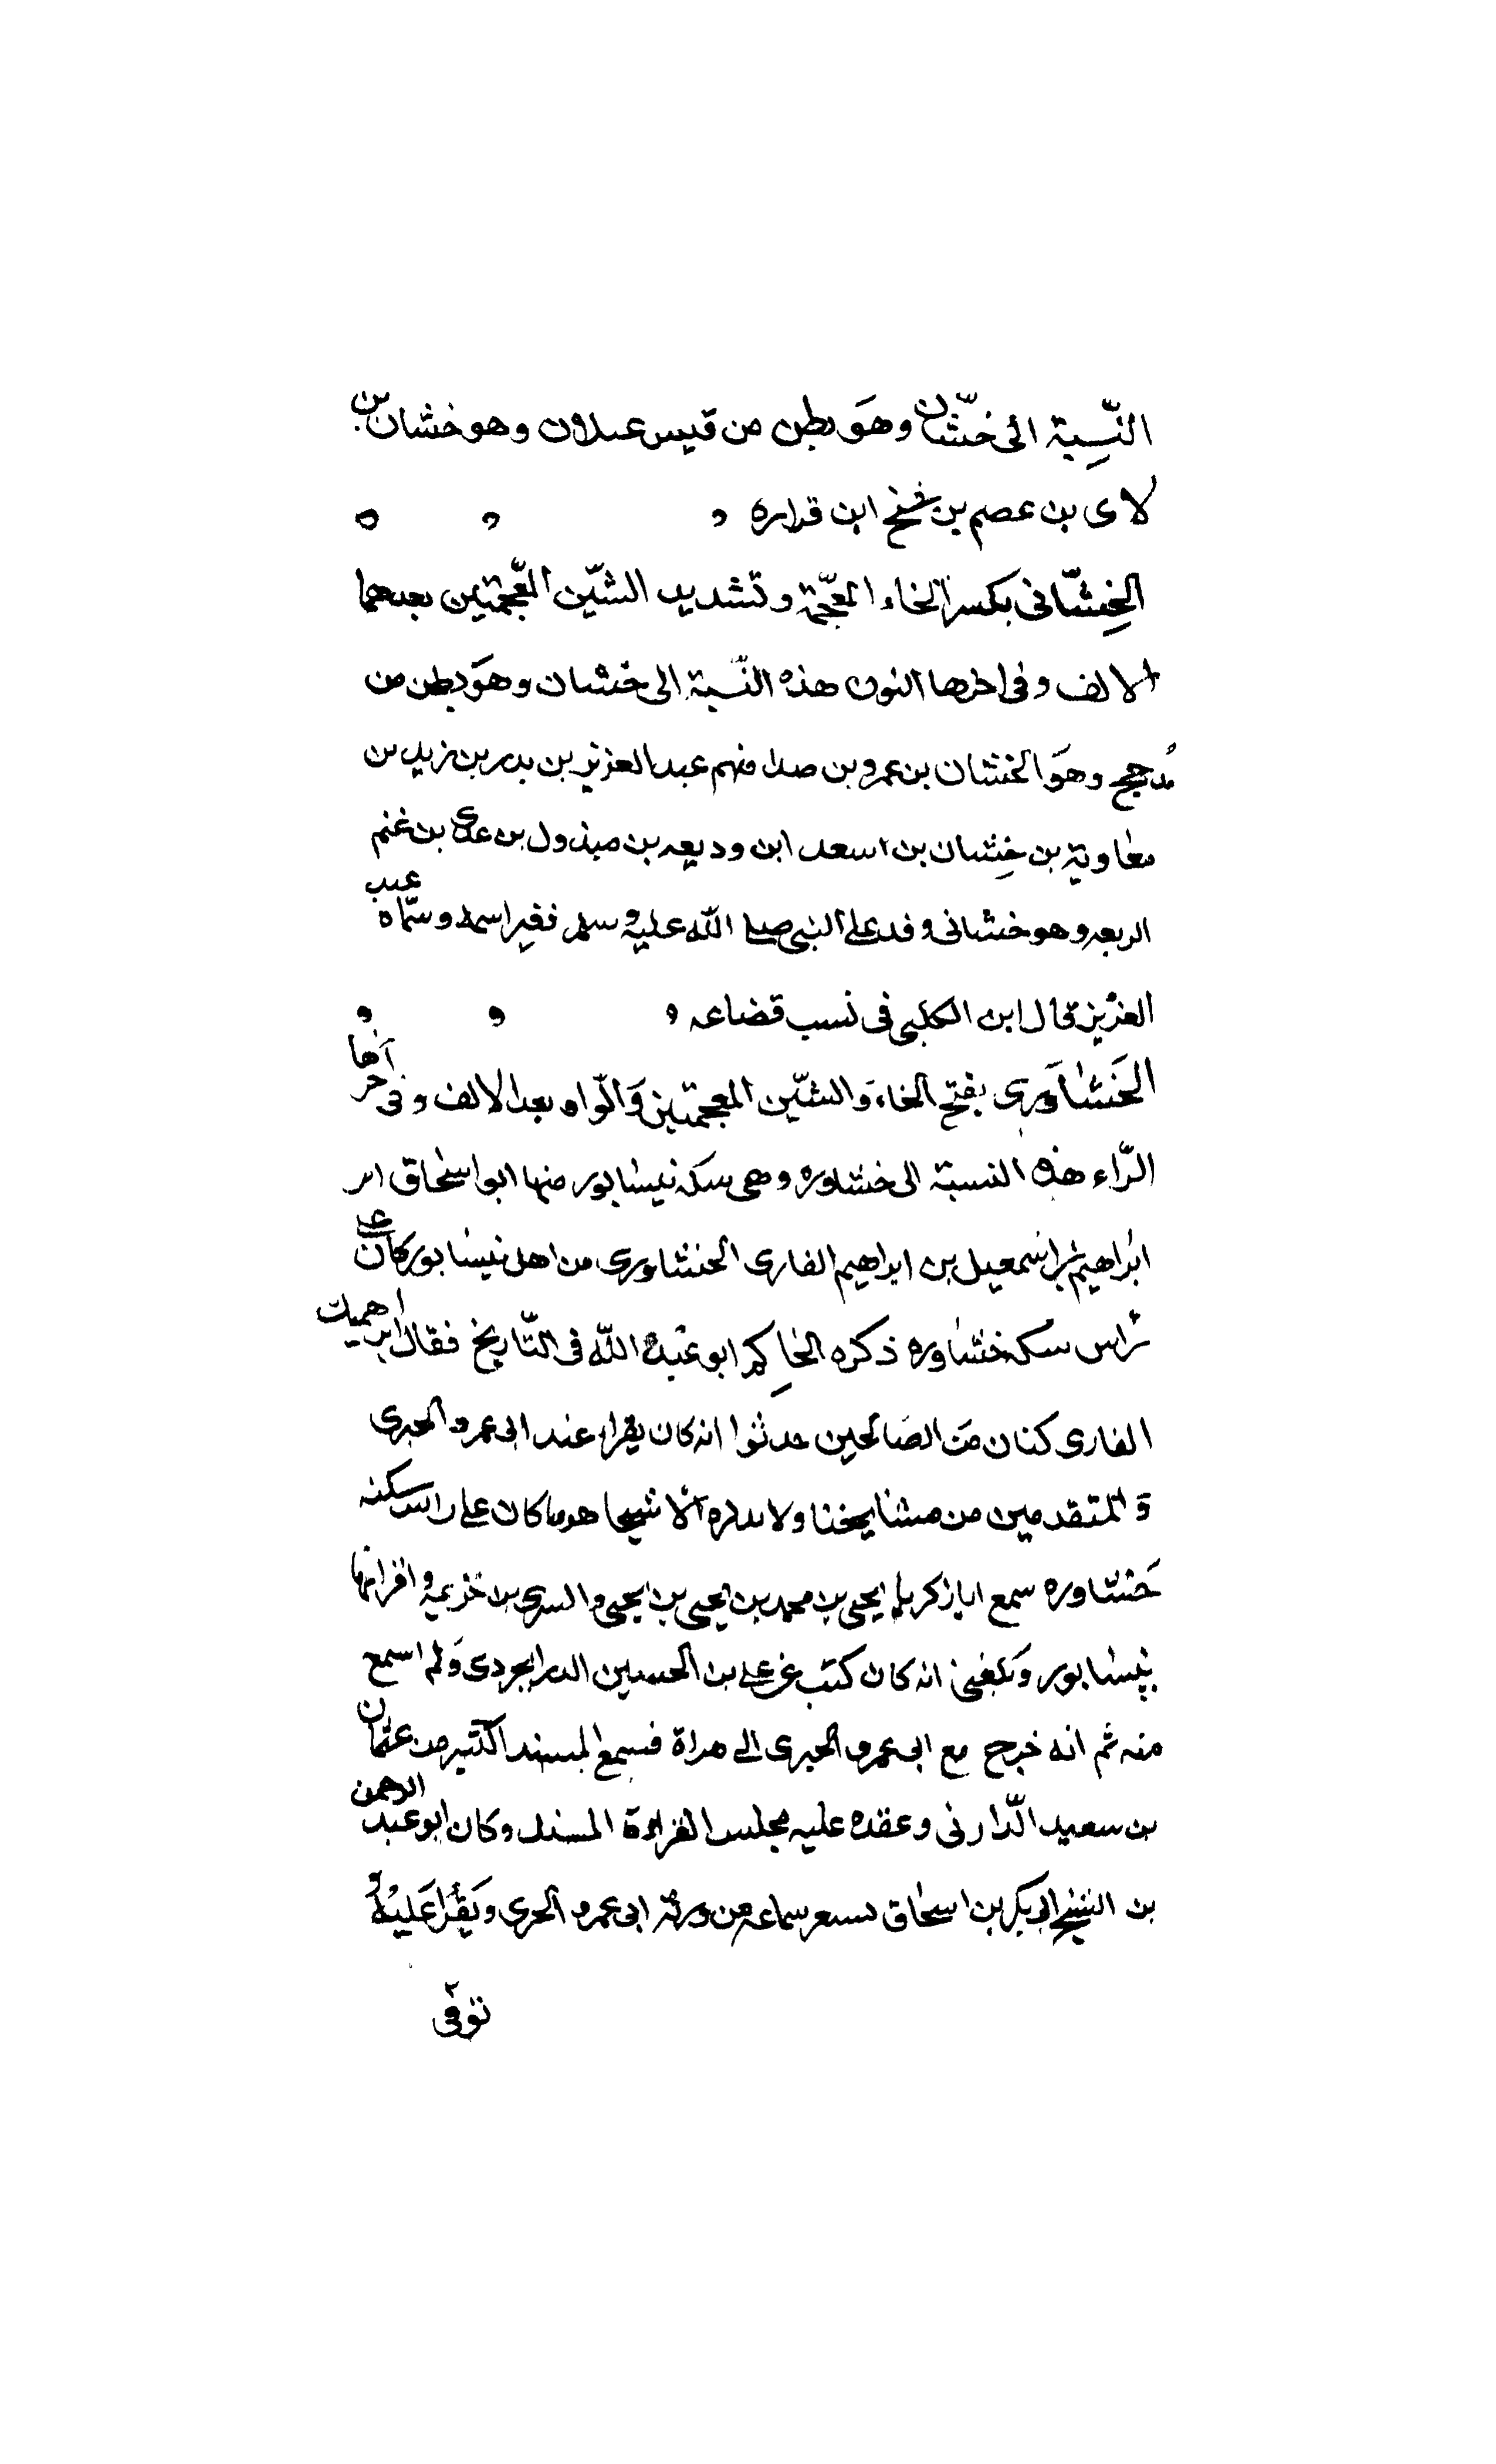 النّسبة الى خشّان وهو بطن من قيس عيلان وهو خشان بن
لاى بن عصم بن شمخ ابن فزاره
الخِشّانى بكسر الخاء المعجمة وتشديد الشّين المعجمتين بعدهما
الالف وفى اخرها النون هذه النّسبة الى خشان وهو بطن من
مذحج وهو الخشان بن عمرو بن صدا منهم عبد العزيز بن بدر بن زيد بن
معاوية بن خِشان بن اسعد ابن وديعه بن مبذول بن عدى بن غنم
الربعه وهو خشانى وفد على النبى صلى الله عليه وسلم فغير اسمه وسمّاه عبد
العزيز قال ابن الكلبى فى نسب قضاعه
الخَشاوَرى بفتح الخاء والشّين المعجمتين والواو بعد الالف وفى اخرها
الرّاء هذه النسبة الى خشاوره وهى سكة نيسابور منها ابو اسحاق
ابراهيم بن اسمعيل بن ابراهيم القارى الخشاورى من اهل نيسابور كان على
راس سكة خشاوره ذكره الحاكم ابو عبد الله فى التّاريخ فقال ابراهيم
القارى كان من الصالحين حدثوا انه كان يقرا عند ابى عمرو الحيرى
والمتقدمين من مشايخنا ولا الا شيخا هرما كان على راس سكة
خشاوره سمع ابا زكريا يحيى بن محمد بن يحيى بن يحيى والسرى بن خزيمه واقرانهما
بنيسابور وبلغنى انه كان كتب عن على بن الحسين الدرابجردى ولم اسمع
منه ثم انه خرج مع ابى عمرو الحيرى الى هراة فسمع المسند الكثير من عثمان
بن سعيد الدّارمى وعقده عليه مجلس القراءة المسند وكان ابو عبد الرحمن
بن الشيخ ابى بكر بن اسحاق سماعه من ورثة ابى عمرو الحيرى ويقرا عليه
توفى